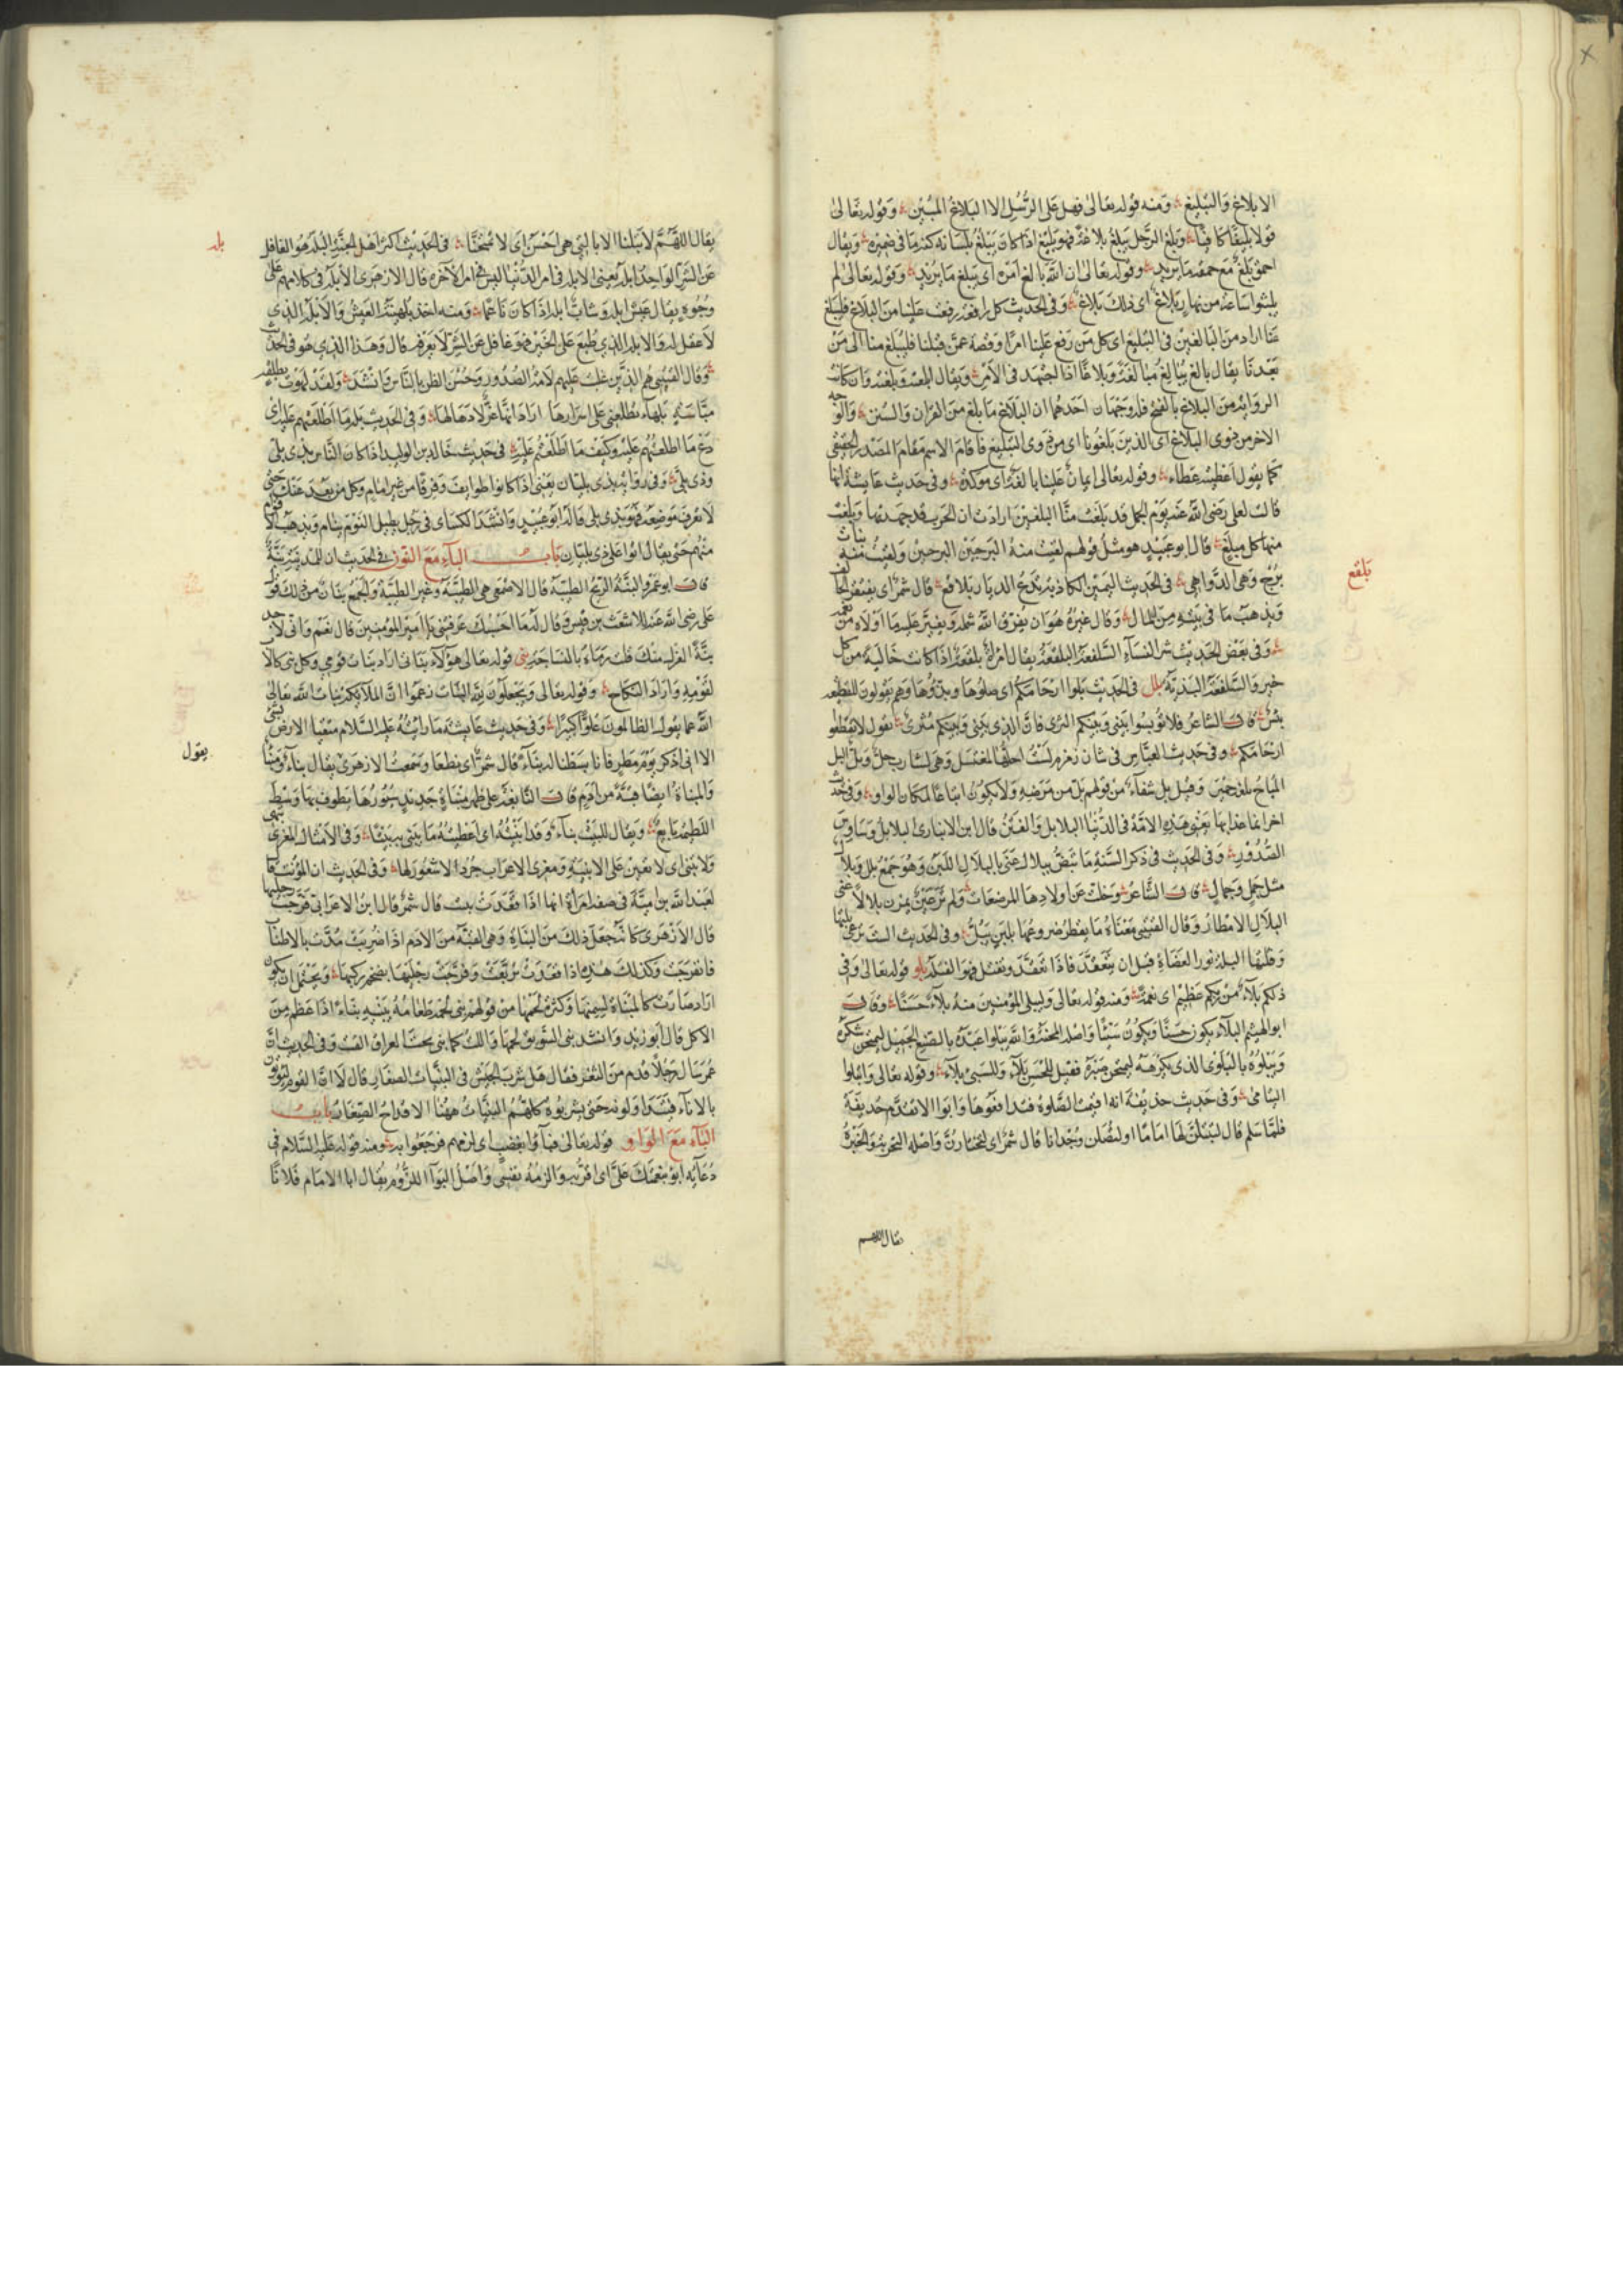 الابلاغ والتبليغ ومنه قوله تعالى فهل على الرسل الا البلاغ المبين وقوله تعالى
قولا بليغا كافيا وبلغ الرجل يبلغ بلاغة فهو بليغ اذا كان يبلغ بلسانه كنه ما في ضميره ويقال
احمق بلغ مع حمقه ما يريد وقوله تعالى ان الله بالغ امره اى يبلغ ما يريد وقوله تعالى لم
يلبثوا ساعة من نهار بلاغ اى ذلك بلاغ وفى الحديث كل رافعة رفعت علينا من البلاغ فليبلغ
عنا اراد من المبالغين فى التبليغ اى كل من رفع علينا امرا وقصه عمن قبلنا فليبلغ منا الى من
بعدنا يقال بالغ يبالغ مبالغة وبلاغا اذا اجتهد فى الامر ويقال ابلغته وبلغته وان كانت
الرواية من البلاغ بالفتح فله وجهان احدهما ان البلاغ ما بلغ من القران والسنن والوجه
الاخر من ذوى البلاغ اى الذين بلغونا اى من ذوى التبليغ فاقام الاسم مقام المصدر الحقيقى
كما يقول اعطيته عطاء وقوله تعالى ايمان علينا بالغة اى موكدة وفى حديث عايشة انها
قالت لعلى رضى الله عنه يوم الجمل قد بلغت منا البلغين ارادت ان الحرب قد جهدتها وبلغت
منها كل مبلغ قال ابو عبيد هو مثل قولهم لقيت منه البرحين البرحين ولقيت منه بنات
برح وهى الدواهى فى الحديث اليمين الكاذبة تدع الديار بلاقع قال شمر اى يفتقر الحالف
ويذهب ما فى بيته من المال وقال غيره هو ان يفرق الله شمله ويغير عليه ما اولاه من نعمه
وفى بعض الحديث شر النساء السلفعة البلقعة يقال امراة بلقعة اذا كانت خالية من كل
خير والسلفعة البذية بلل فى الحديث بلوا ارحامكم اى صلوها وندوها وهم يقولون للقطيعة
يبس قال الشاعر فلا توبسوا بينى وبينكم الثرى فان الذى بينى وبينكم مثرى يقول لا تقطعوا
ارحامكم وفى حديث العباس فى شان زمزم لست احلها لمغتسل وهى لشارب حل وبل البل
المباح بلغة حمير وقيل بل شفاء من قولهم بل من مرضه ولا يكون اتباعا لمكان الواو وفى حديث
اخر انما عذابها يعنى هذه الامة فى الدنيا البلابل والفتن قال ابن الانبارى البلابل وساوس
الصدور وفى الحديث فى ذكر السنة ما تبض ببلال عنى بالبلال اللبن وهو جمع بلل وبلال
مثل جمل وجمال قال الشاعر وخلت عن اولادها المرضعات ولم تر عين لمزن بلالا عنى
البلال الامطار وقال القتيبى معناه ما يقطر ضروعها بلبن يبل وفى الحديث الست ترعى بلتها
وقتلها البلة نور العضاة قبل ان ينعقد فاذا تعقد وتفتل فهو الفتلة بلو قوله تعالى وفى
ذلكم بلاء من ربكم عظيم اى نعمة ومنه قوله تعالى وليبلى المؤمنين منه بلاء حسنا وقال
ابو الهيثم البلاء يكون حسنا ويكون سيئا واصله المحنة والله يبلوا عبده بالصنع الجميل ليمتحن شكره
ويبلوه بالبلوى الذى يكرهه ليمتحن صبره فقيل للحسن بلاء وللسيئ بلاء وقوله تعالى وابتلوا
اليتامى وفى حديث حذيفة انه اقيمت الصلوة فتدافعوها وابوا الا تقدم حذيفة
فلما سلم قال لتبتلن لها اماما او لتصلن وجدانا قال شمر اى لتختارن واصله التجربة والخبرة
يقال اللهم
بلقع
يقال اللهم لا تبلنا الا بالتى هى احسن اى لا تمتحنا فى الحديث اكثر اهل الجنة البله هو الغافل
عن الشر الواحد ابله يعنى الابله فى امر الدنيا اليس فى امر الاخرة قال الازهرى الابله فى كلامهم على
وجوه يقال عيش ابله وشاب ابله اذا كان ناعما ومنه اخذ بلهنية العيش والابله الذى
لا عقل له والابله الذى طبع على الخير فهو غافل عن الشر لا يعرفه قال وهذا الذى هو فى الحديث
وقال القتيبى هم الذين غلبت عليهم سلامة الصدور وحسن الظن بالناس وانشد ولقد لهوت بطفلة
ميالة بلهاء تطلعنى على اسرارها اراد انها غر لا دهاء لها وفى الحديث بله ما اطلعتهم عليه اى
دع ما اطلعتهم عليه وكيف ما اطلعتهم عليه فى حديث خالد بن الوليد اذا كان الناس بذى بلى
وذى بلى وفى رواية بذى بليان يعنى اذا كانوا طوايف وفرقا من غير امام وكل من بعد عنك حتى
لا تعرف موضعه فهو بذى بلى قاله ابو عبيد وانشد الكسائى فى رجل يطيل النوم ينام ويذهب الاقوام
منهم حتى يقال اتوا على ذى بليان باب الباء مع النون فى الحديث ان للمدينة بنة
قال ابو عمرو البنة الريح الطيبة قال الاصمعى هى الطيبة وغير الطيبة والجمع بنان ومن ذلك قول
على رضى الله عنه للاشعث بن قيس وقال له ما احسبك عرفتنى يا امير المؤمنين قال نعم وانى لاجد
بنة الغزل منك قلت رماه بالنساجة بنى قوله تعالى هؤلاء بناتى اراد بنات قومى وكل نبى كالاب
لقومه واراد النكاح وقوله تعالى ويجعلون لله البنات زعموا ان الملائكة بنات الله تعالى
الله عما يقول الظالمون علوا كبيرا وفى حديث عايشة ما رايته عليه السلام متقيا الارض بشئ
الا انى اذكر يوم مطر فانا بسطنا له بناء قال شمر اى نطعا وسمعت الازهرى يقال بناء ومبناة
والمبناة ايضا قبة من ادم قال النابغة على ظهر مبناة جديد سيورها يطوف بها وسط
اللطيمة بايع ويقال للبيت بناء وقد ابنيته اى اعطيته ما يبنى به بيتا وفى الامثال المعزى تبهى
ولا تبنى اى لا تعين على الابنية ومعزى الاعراب جرد لا شعور لها وفى الحديث ان المخنث قال
لعبد الله بن امية فى صفة امراة انها اذا قعدت تبنت قال شمر قال ابن الاعرابى فرجت رجليها
قال الازهرى كانه جعل ذلك من المبناة وهى القبة من الادم اذا ضربت مدت بالاطناب
فانفرجت وكذلك هذه اذا قعدت تربعت وفرجت رجليها بضخم ركبها ويحتمل ان يكون
اراد صارت كالمبناة لسمنها وكثرة لحمها من قولهم بنى لحمه طعامه يبنيه بناء اذا عظم من
الاكل قال ابو زيد وانشد بنى السويق لحمها والت كما بنى بخت العراق القت وفى الحديث ان
عمر سال رجلا قدم من الثغر فقال هل شرب الجيش فى البنيات الصغار قال لا ان القوم ليوتون
بالاناء فيتداولونه حتى يشربوه كلهم البنيات ههنا الاقداح الصغار باب
الباء مع الواو قوله تعالى فباؤا بغضب اى لزمهم فرجعوا به ومنه قوله عليه السلام فى
دعائه ابوء بنعمتك على اى اقر به والزمه نفسى واصل البواء اللزوم يقال اباء الامام فلانا
بله
يقول